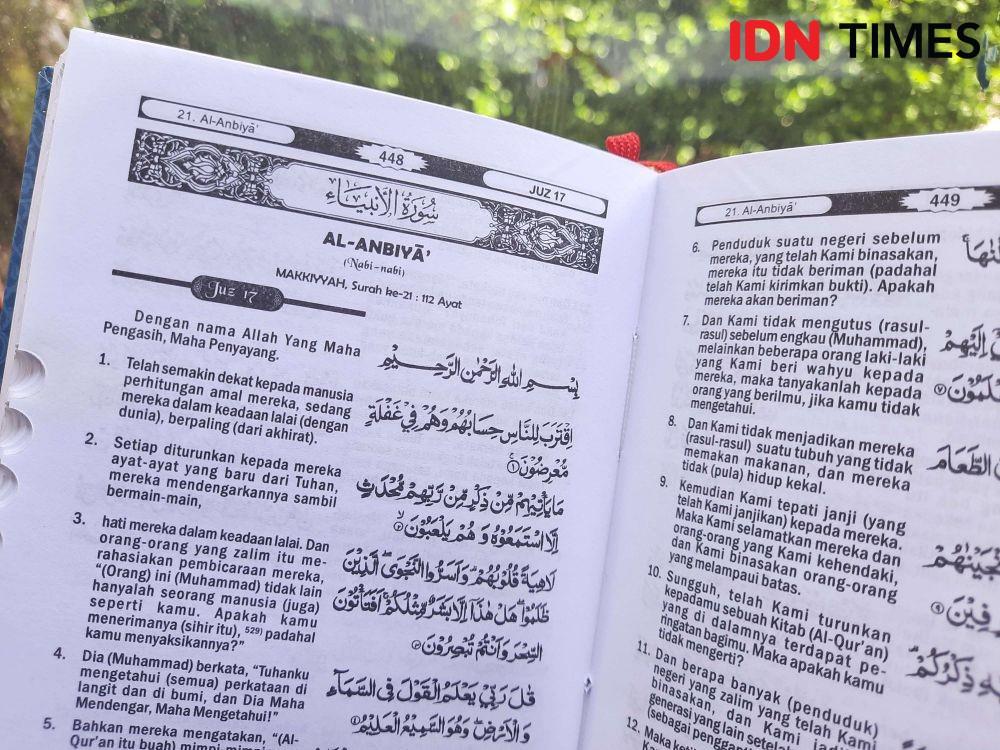 IDN TIMES
21. Al-Anbiyā'
448
JUZ 17
سُوْرَةُ الْاَنْبِيَاۤءِ
AL-ANBIYĀ'
(Nabi-nabi)
MAKKIYYAH, Surah ke-21 : 112 Ayat
Juz 17
Dengan nama Allah Yang Maha
Pengasih, Maha Penyayang.
بِسْمِ اللهِ الرَّحْمٰنِ الرَّحِيْمِ
1. Telah semakin dekat kepada manusia
perhitungan amal mereka, sedang
mereka dalam keadaan lalai (dengan
dunia), berpaling (dari akhirat).
اِقْتَرَبَ لِلنَّاسِ حِسَابُهُمْ وَهُمْ فِيْ غَفْلَةٍ
مُّعْرِضُوْنَ ۝١
2. Setiap diturunkan kepada mereka
ayat-ayat yang baru dari Tuhan,
mereka mendengarkannya sambil
bermain-main,
مَا يَأْتِيْهِمْ مِّنْ ذِكْرٍ مِّنْ رَّبِّهِمْ مُّحْدَثٍ
اِلَّا اسْتَمَعُوْهُ وَهُمْ يَلْعَبُوْنَ ۙ۝٢
3. hati mereka dalam keadaan lalai. Dan
orang-orang yang zalim itu me-
rahasiakan pembicaraan mereka,
“(Orang) ini (Muhammad) tidak lain
hanyalah seorang manusia (juga)
seperti kamu. Apakah kamu
menerimanya (sihir itu), 529) padahal
kamu menyaksikannya?”
لَاهِيَةً قُلُوْبُهُمْ ۗ وَاَسَرُّوا النَّجْوَى ۖ الَّذِيْنَ
ظَلَمُوْا ۖ هَلْ هٰذَآ اِلَّا بَشَرٌ مِّثْلُكُمْ ۚ اَفَتَأْتُوْنَ
السِّحْرَ وَاَنْتُمْ تُبْصِرُوْنَ ۝٣
4. Dia (Muhammad) berkata, “Tuhanku
mengetahui (semua) perkataan di
langit dan di bumi, dan Dia Maha
Mendengar, Maha Mengetahui!”
قٰلَ رَبِّيْ يَعْلَمُ الْقَوْلَ فِى السَّمَاۤءِ
وَالْاَرْضِ ۖ وَهُوَ السَّمِيْعُ الْعَلِيْمُ ۝٤
5. Bahkan mereka mengatakan, “(Al-
Qur'an itu buah) mimpi-mimpi
21. Al-Anbiyā'
449
6. Penduduk suatu negeri sebelum
mereka, yang telah Kami binasakan,
mereka itu tidak beriman (padahal
telah Kami kirimkan bukti). Apakah
mereka akan beriman?
7. Dan Kami tidak mengutus (rasul-
rasul) sebelum engkau (Muhammad),
melainkan beberapa orang laki-laki
yang Kami beri wahyu kepada
mereka, maka tanyakanlah kepada
orang yang berilmu, jika kamu tidak
mengetahui.
اِلَيْهِمْ
8. Dan Kami tidak menjadikan mereka
(rasul-rasul) suatu tubuh yang tidak
memakan makanan, dan mereka
tidak (pula) hidup kekal.
الطَّعَامَ
9. Kemudian Kami tepati janji (yang
telah Kami janjikan) kepada mereka.
Maka Kami selamatkan mereka dan
orang-orang yang Kami kehendaki,
dan Kami binasakan orang-orang
yang melampaui batas.
10. Sungguh, telah Kami turunkan
kepadamu sebuah Kitab (Al-Qur'an)
yang di dalamnya terdapat pe-
ringatan bagimu. Maka apakah kamu
tidak mengerti?
ذِكْرُكُمْ ۗ
11. Dan berapa banyak (penduduk)
negeri yang zalim yang telah Kami
binasakan, dan Kami jadikan
generasi yang lain setelah
(sebagai pengganti
12. Maka ketika